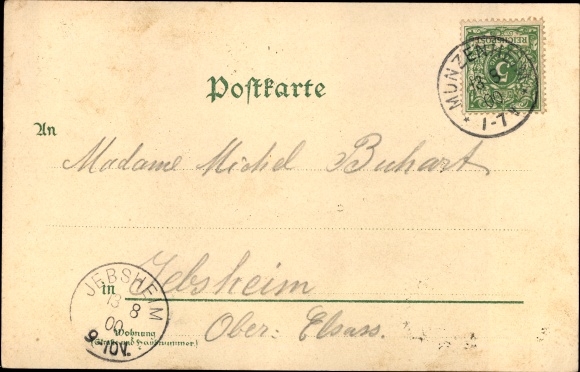 Postkarte
REICHSPOST
5
MUNZENHEIM
13 8
00
* 1-7 V.
An
Madame Michel Buhart
in Jebsheim
Ober: Elsass.
Wohnung
(Straße und Hausnummer.)
JEBSHEIM
13 8
00
9-10V.